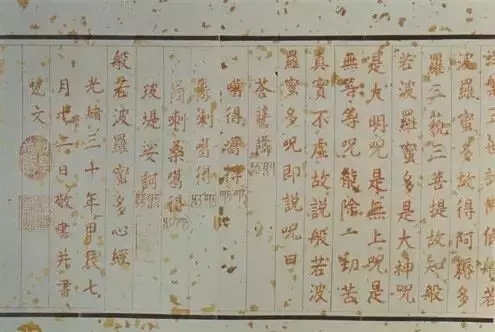 世諸佛依般若
波羅蜜多故得阿耨多
羅三藐三菩提故知般
若波羅蜜多是大神咒
是大明咒是無上咒是
無等等咒能除一切苦
真實不虛故說般若波
羅蜜多咒即說咒曰
噶得
喇噶得
喇桑噶得
提娑訶
般若波羅蜜多心經
光緒三十年甲辰七
月十六日敬書并書
文